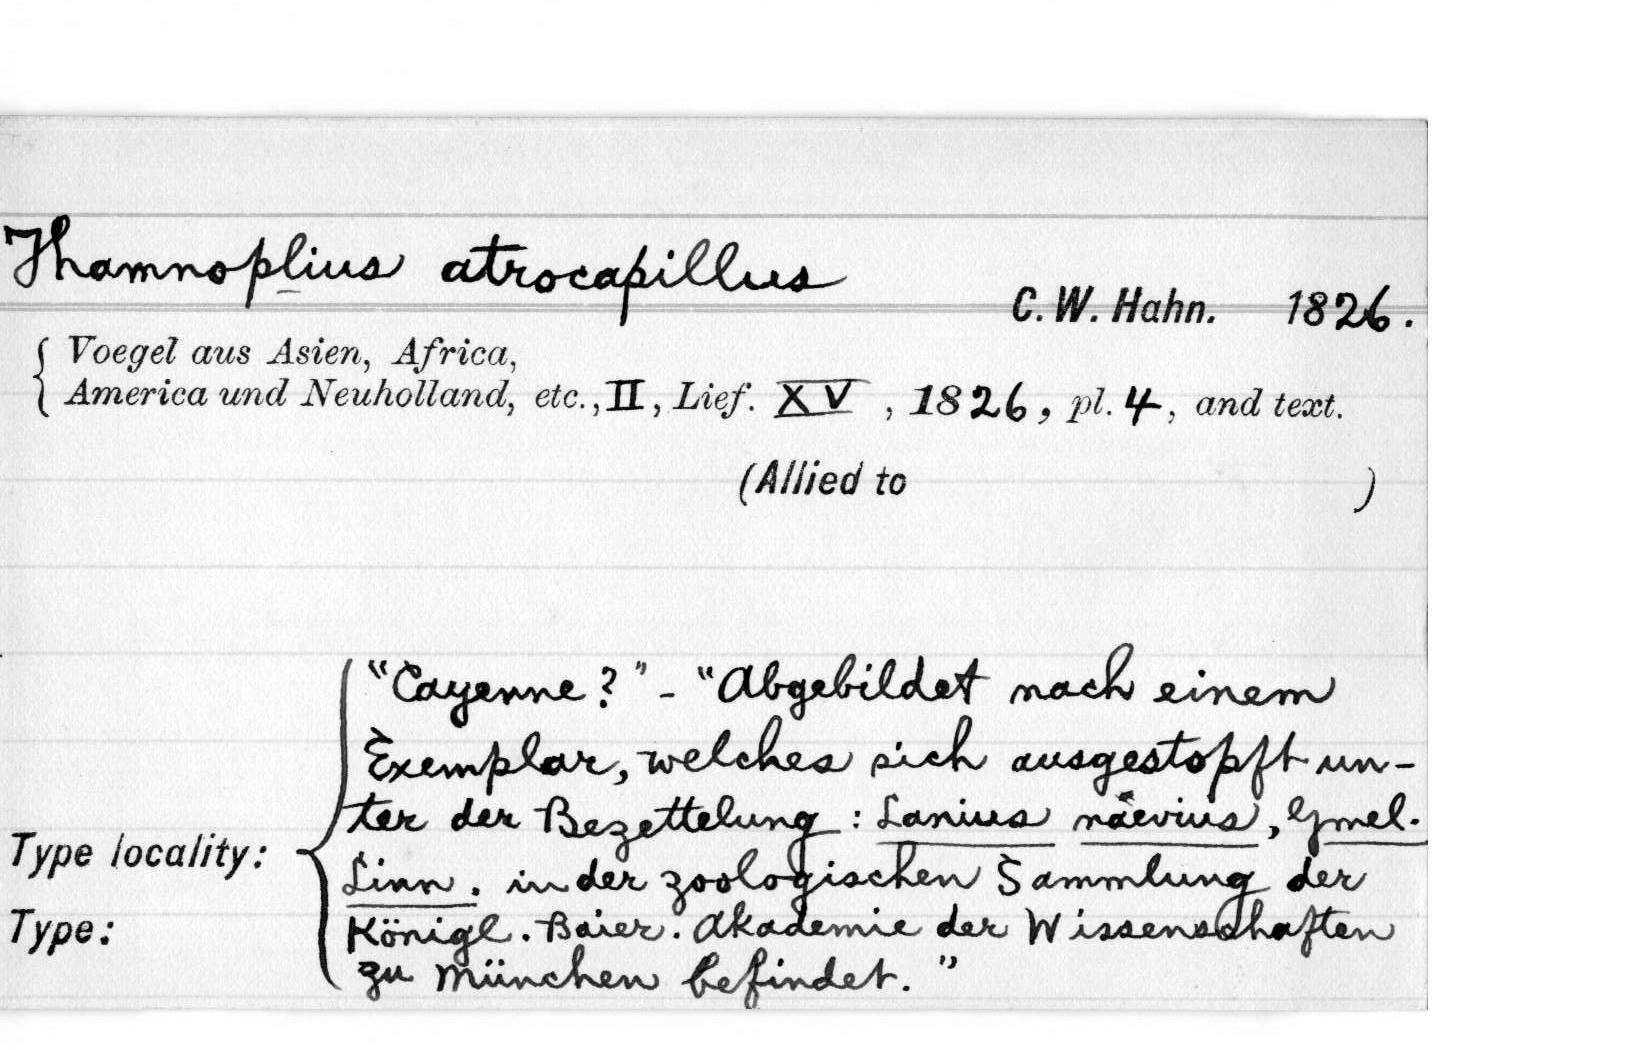 Thamnoplius atrocapillus
C. W. Hahn. 1826.
Voegel aus Asien, Africa,
America und Neuholland, etc., II, Lief. XV, 1826, pl. 4, and text.
(Allied to )
"Cayenne?" - "Abgebildet nach einem
Exemplar, welches sich ausgestopft un-
ter der Bezettelung: Lanius näevius, Gmel.
Type locality:
Linn. in der zoologischen Sammlung der
Type:
Königl. Baier. Akademie der Wissenschaften
zu München befindet."